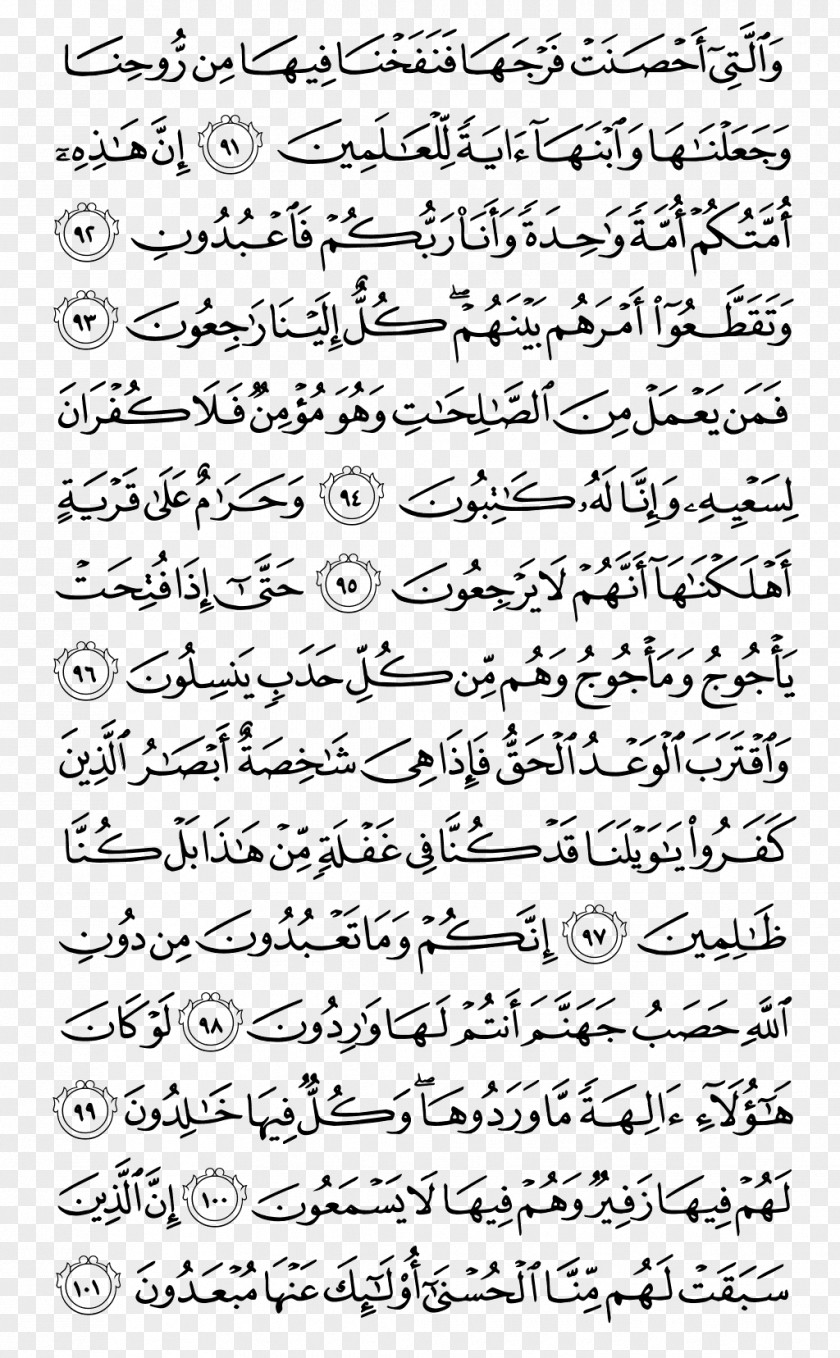 وَٱلَّتِىٓ أَحۡصَنَتۡ فَرۡجَهَا فَنَفَخۡنَا فِيهَا مِن رُّوحِنَا
وَجَعَلۡنَٰهَا وَٱبۡنَهَآ ءَايَةٗ لِّلۡعَٰلَمِينَ ٩١ إِنَّ هَٰذِهِۦٓ
أُمَّتُكُمۡ أُمَّةٗ وَٰحِدَةٗ وَأَنَا۠ رَبُّكُمۡ فَٱعۡبُدُونِ ٩٢
وَتَقَطَّعُوٓاْ أَمۡرَهُم بَيۡنَهُمۡۖ كُلٌّ إِلَيۡنَا رَٰجِعُونَ ٩٣
فَمَن يَعۡمَلۡ مِنَ ٱلصَّٰلِحَٰتِ وَهُوَ مُؤۡمِنٞ فَلَا كُفۡرَانَ
لِسَعۡيِهِۦ وَإِنَّا لَهُۥ كَٰتِبُونَ ٩٤ وَحَرَٰمٌ عَلَىٰ قَرۡيَةٍ
أَهۡلَكۡنَٰهَآ أَنَّهُمۡ لَا يَرۡجِعُونَ ٩٥ حَتَّىٰٓ إِذَا فُتِحَتۡ
يَأۡجُوجُ وَمَأۡجُوجُ وَهُم مِّن كُلِّ حَدَبٖ يَنسِلُونَ ٩٦
وَٱقۡتَرَبَ ٱلۡوَعۡدُ ٱلۡحَقُّ فَإِذَا هِىَ شَٰخِصَةٌ أَبۡصَٰرُ ٱلَّذِينَ
كَفَرُواْ يَٰوَيۡلَنَا قَدۡ كُنَّا فِى غَفۡلَةٖ مِّنۡ هَٰذَا بَلۡ كُنَّا
ظَٰلِمِينَ ٩٧ إِنَّكُمۡ وَمَا تَعۡبُدُونَ مِن دُونِ
ٱللَّهِ حَصَبُ جَهَنَّمَ أَنتُمۡ لَهَا وَٰرِدُونَ ٩٨ لَوۡ كَانَ
هَٰٓؤُلَآءِ ءَالِهَةٗ مَّا وَرَدُوهَاۖ وَكُلّٞ فِيهَا خَٰلِدُونَ ٩٩
لَهُمۡ فِيهَا زَفِيرٞ وَهُمۡ فِيهَا لَا يَسۡمَعُونَ ١٠٠ إِنَّ ٱلَّذِينَ
سَبَقَتۡ لَهُم مِّنَّا ٱلۡحُسۡنَىٰٓ أُوْلَٰٓئِكَ عَنۡهَا مُبۡعَدُونَ ١٠١